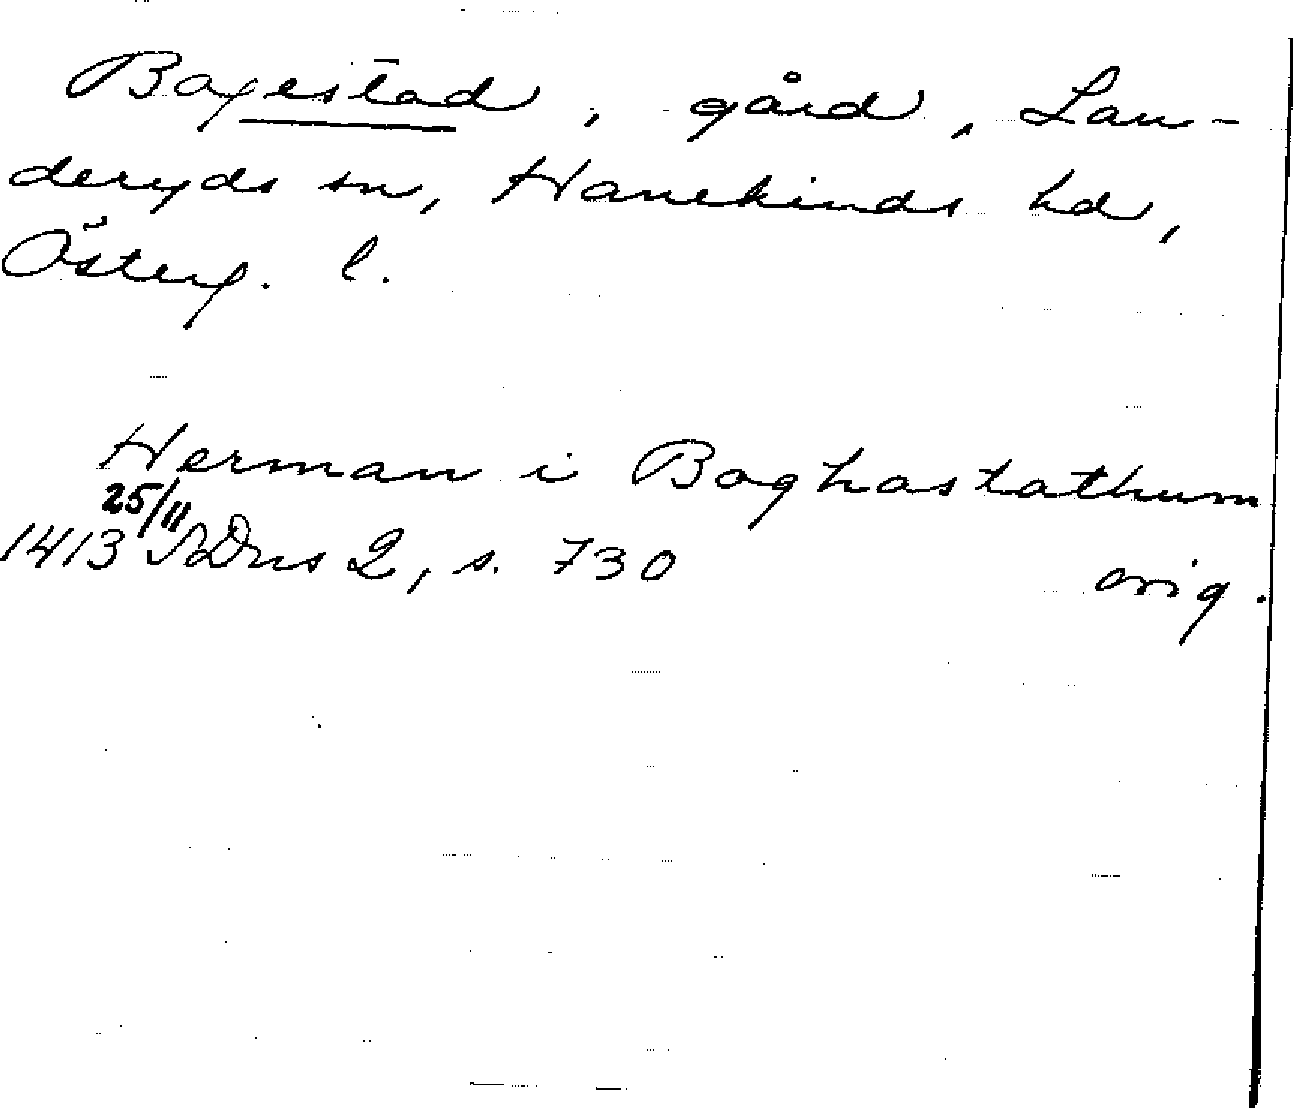 Bogestad, gård, Lan-
deryds sn, Hanekinds hd,
Österg. l.
Herman i Boghastathum
25/11
1413 SDns 2, s. 730 orig.